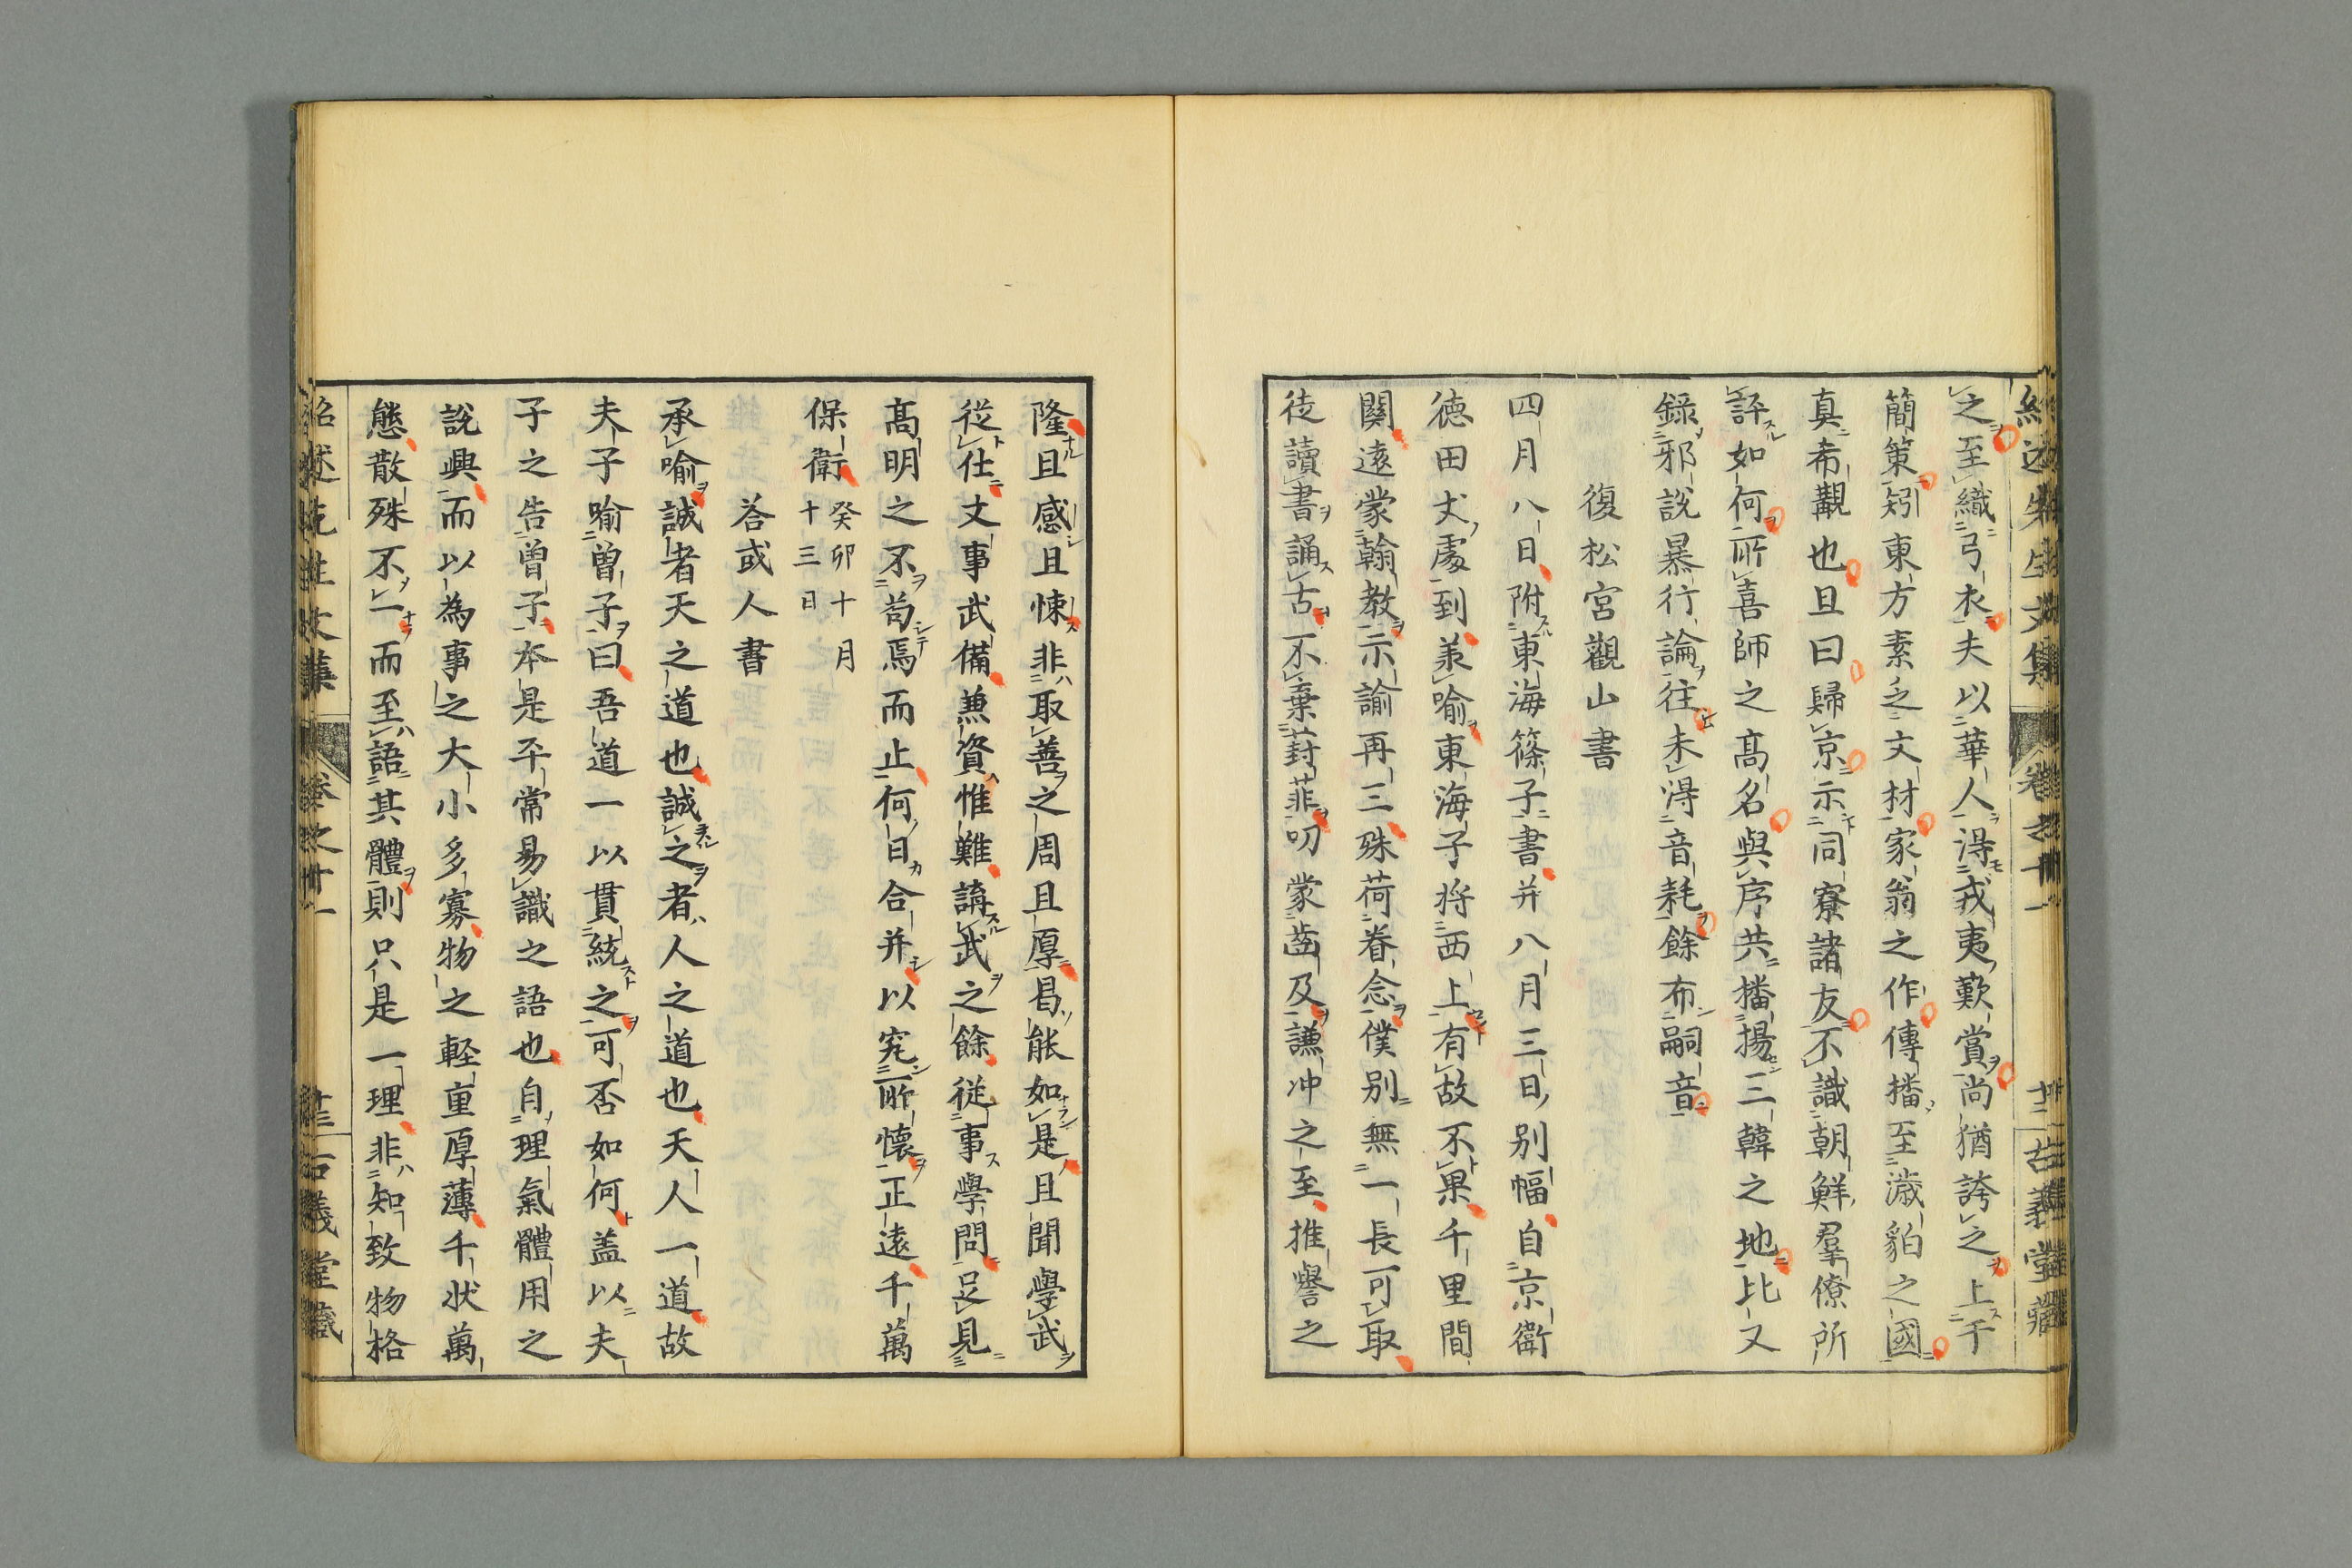 之至織弓衣夫以華人得戎夷歎賞尚猶誇之上于
簡策矧東方素乏文材家翁之作傳播至濊貊之國
真希覯也且曰歸京示同寮諸友不識朝鮮羣僚所
評如何所喜師之髙名與序共播揚三韓之地比又
錄邪說暴行論往未得音耗餘布嗣音
復松宮觀山書
四月八日附東海篠子書并八月三日別幅自京衛
徳田丈處到羕喻東海子将西上有故不果千里間
闋遠蒙翰教示諭再三殊荷眷念僕别無一長可取
徒讀書誦古不棄葑菲叨蒙齒及謙冲之至推譽之
隆且感且悚非取善之周且厚曷能如是且聞學武
従仕文事武備兼資惟難講武之餘従事學問足見
髙明之不苟焉而止何日合并以究所懷正遠千萬
保衛癸卯十月十三日
答或人書
承喻誠者天之道也誠之者人之道也天人一道故
夫子喻曽子曰吾道一以貫統之可否如何盖以夫
子之告曽子本是平常易識之語也自理氣體用之
說興而以為事之大小多寡物之輕重厚薄千状萬
態散殊不一而至語其體則只是一理非知致物格
紹述先生文集 卷之卅一 古義堂藏